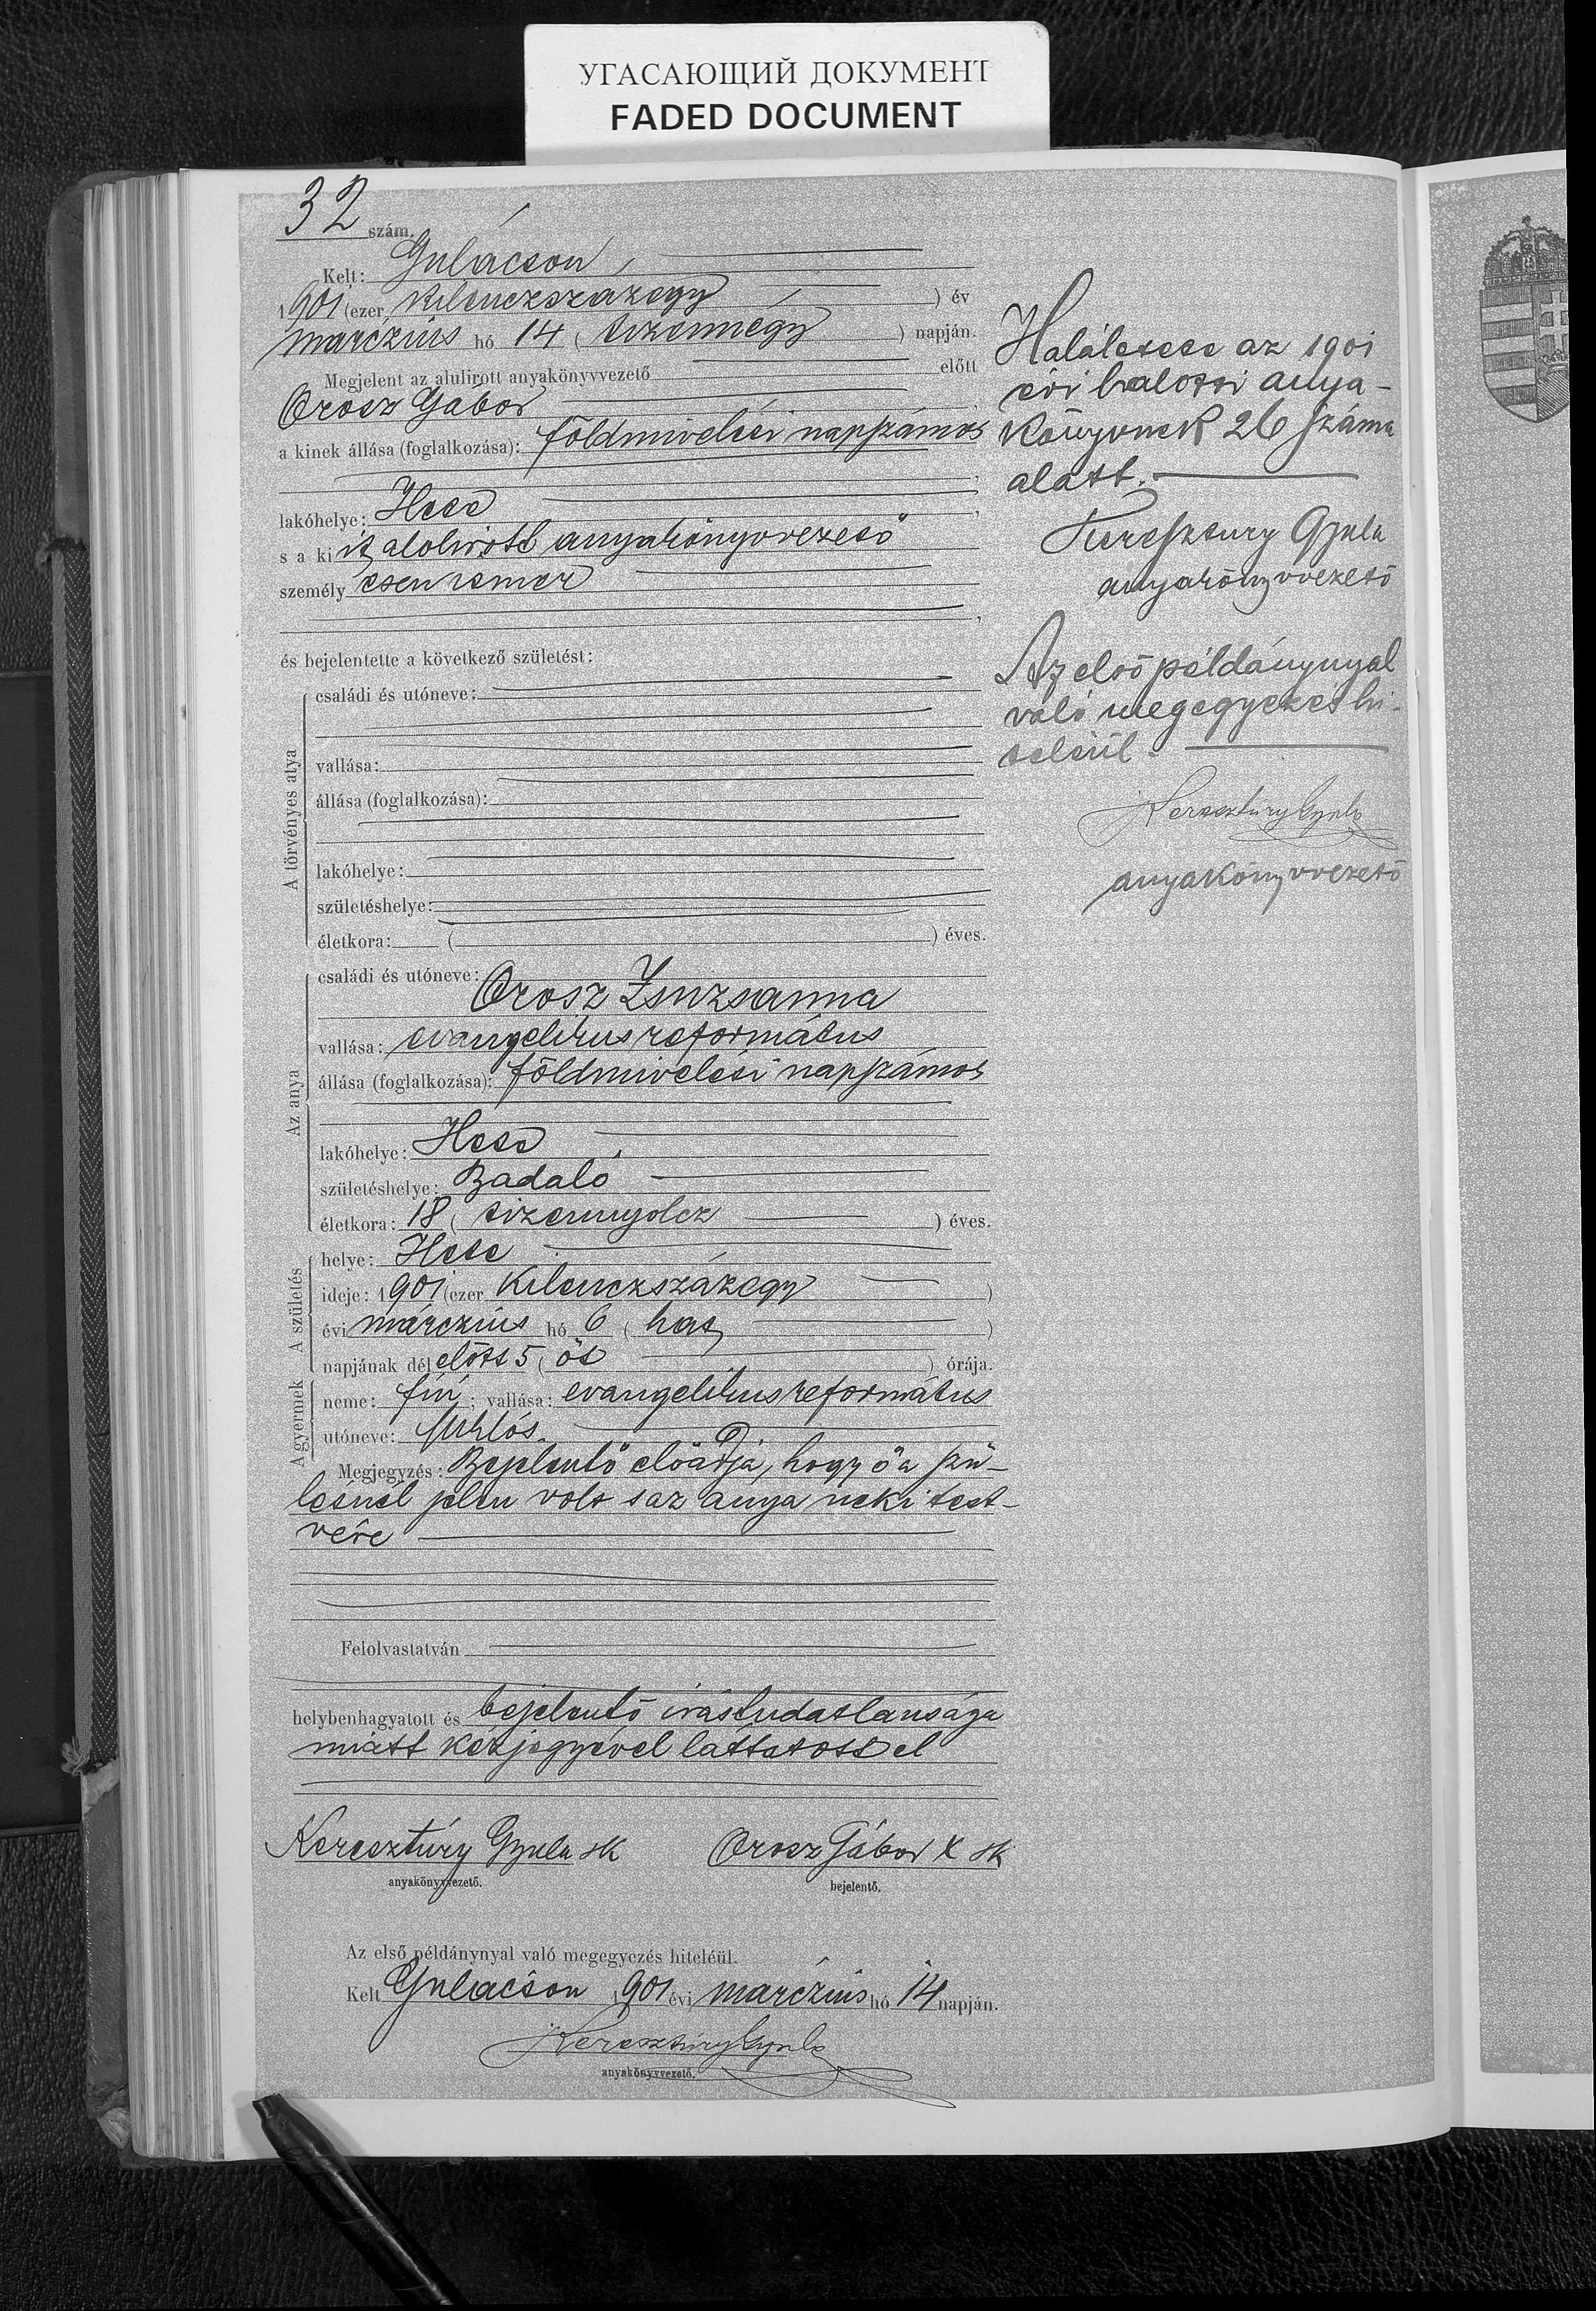 УГАСАЮЩИЙ ДОКУМЕНТ
FADED DOCUMENT
32 szám.
Kelt: Gulácson,
1901 (ezer kilenczszázegy) év
márczius hó 14 (tizennégy) napján.
Megjelent az alulirott anyakönyvvezető előtt
Orosz Gábor
a kinek állása (foglalkozása): földmivelési napszámos
lakóhelye: Hete
s a ki alolirott anyakönyvvezető
személyesen ismer
és bejelentette a következő születést:
A törvényes atya
családi és utóneve:
vallása:
állása (foglalkozása):
lakóhelye:
születéshelye:
életkora: ( ) éves.
Az anya
családi és utóneve:
Orosz Zsuzsanna
vallása: evangelikus református
állása (foglalkozása): földmivelési napszámos
lakóhelye: Hete
születéshelye: Badaló
életkora: 18 (tizennyolcz) éves.
A születés
helye: Hete
ideje: 1901 (ezer kilenczszázegy)
évi márczius hó 6 (hat)
napjának dél előtt 5 (öt) órája.
A gyermek
neme: fiú; vallása: evangelikus református
utóneve: Miklós.
Megjegyzés: Bejelentő előadja, hogy ő a szü-
lésnél jelen volt s az anya neki test-
vére
Felolvastatván
helybenhagyatott és bejelentő irástudatlansága
miatt kézjegyével láttatott el
Keresztúry Gyula sk Orosz Gábor X sk
anyakönyvvezető. bejelentő.
Az első példánynyal való megegyezés hiteléül.
Kelt Gulácson 1901 évi márczius hó 14 napján.
Keresztúry Gyula
anyakönyvvezető.
Halálesete az 1901
évi halotti anya-
könyvnek 26 száma
alatt.
Keresztury Gyula
anyakönyvvezető
Az első példánynyal
való megegyezés hi-
teléül.
Keresztúry Gyula
anyakönyvvezető